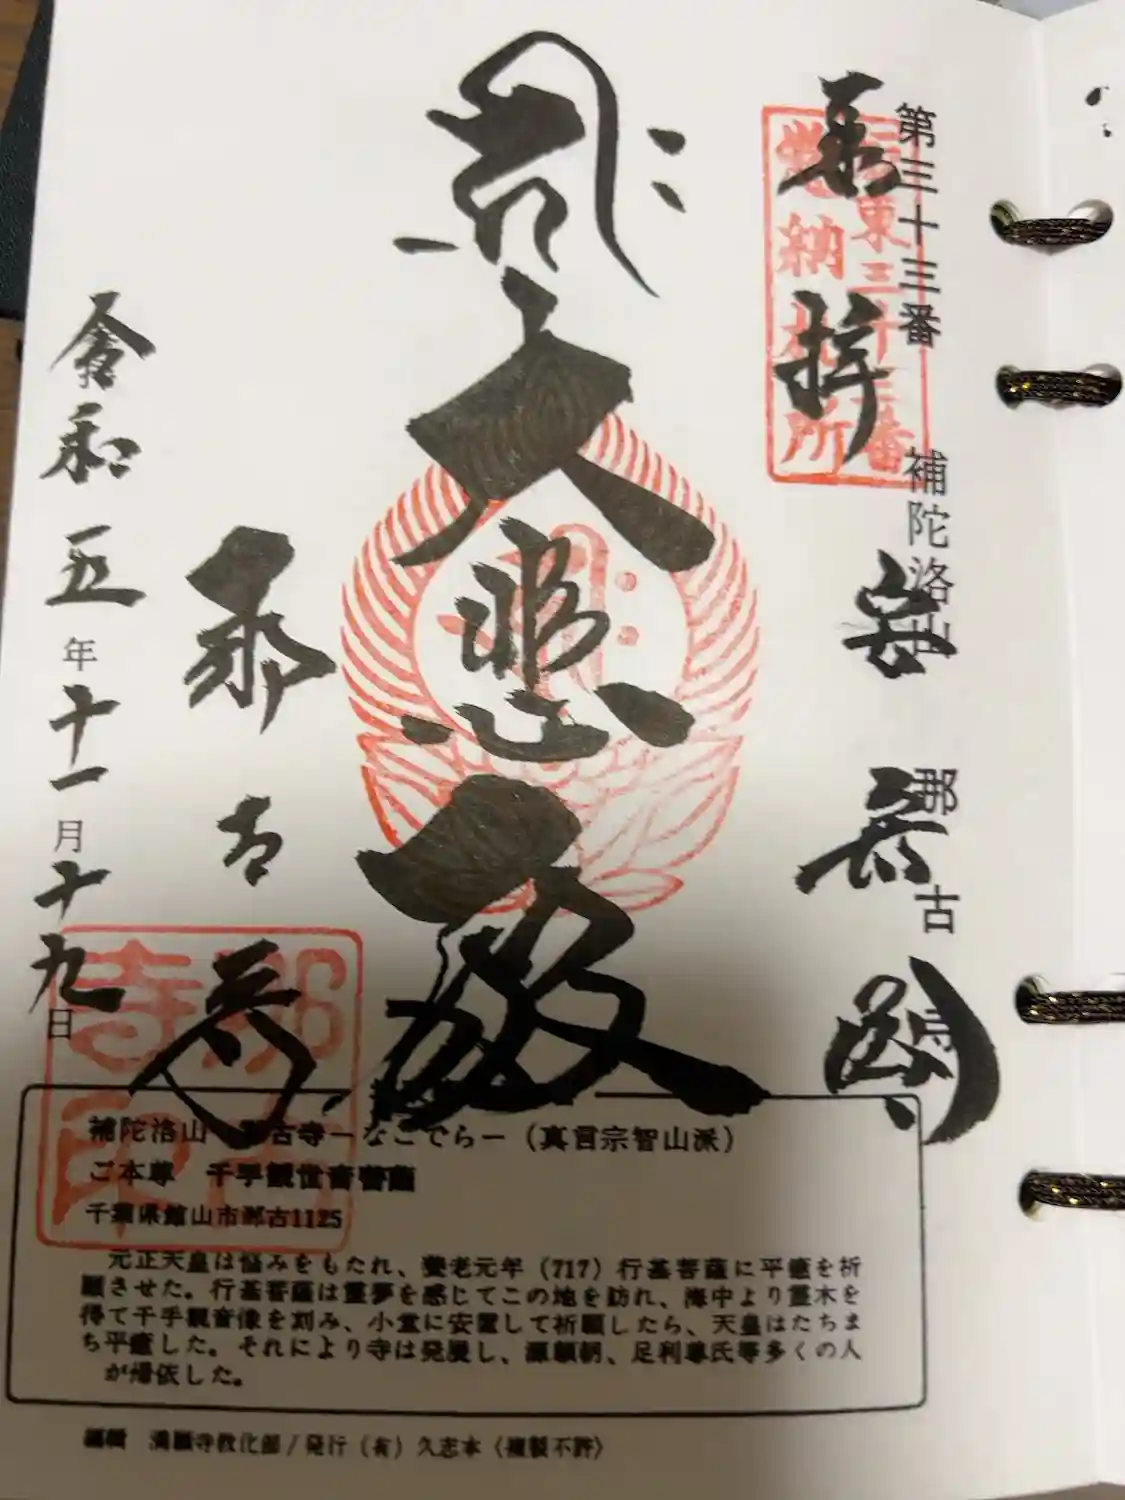 第三十三番 補陀洛山 那古寺
奉拝 安房國
坂東三十三番
納札所
大悲殿
那古寺
令和五年十一月十九日
那古
寺印
補陀洛山 那古寺－なごでら－（真言宗智山派）
ご本尊 千手観世音菩薩
千葉県館山市那古1125
元正天皇は悩みをもたれ、養老元年（717）行基菩薩に平癒を祈
願させた。行基菩薩は霊夢を感じてこの地を訪れ、海中より霊木を
得て千手観音像を刻み、小堂に安置して祈願したら、天皇はたちま
ち平癒した。それにより寺は発展し、源頼朝、足利尊氏等多くの人
が帰依した。
編輯 満願寺教化部/発行（有）久志本〈複製不許〉